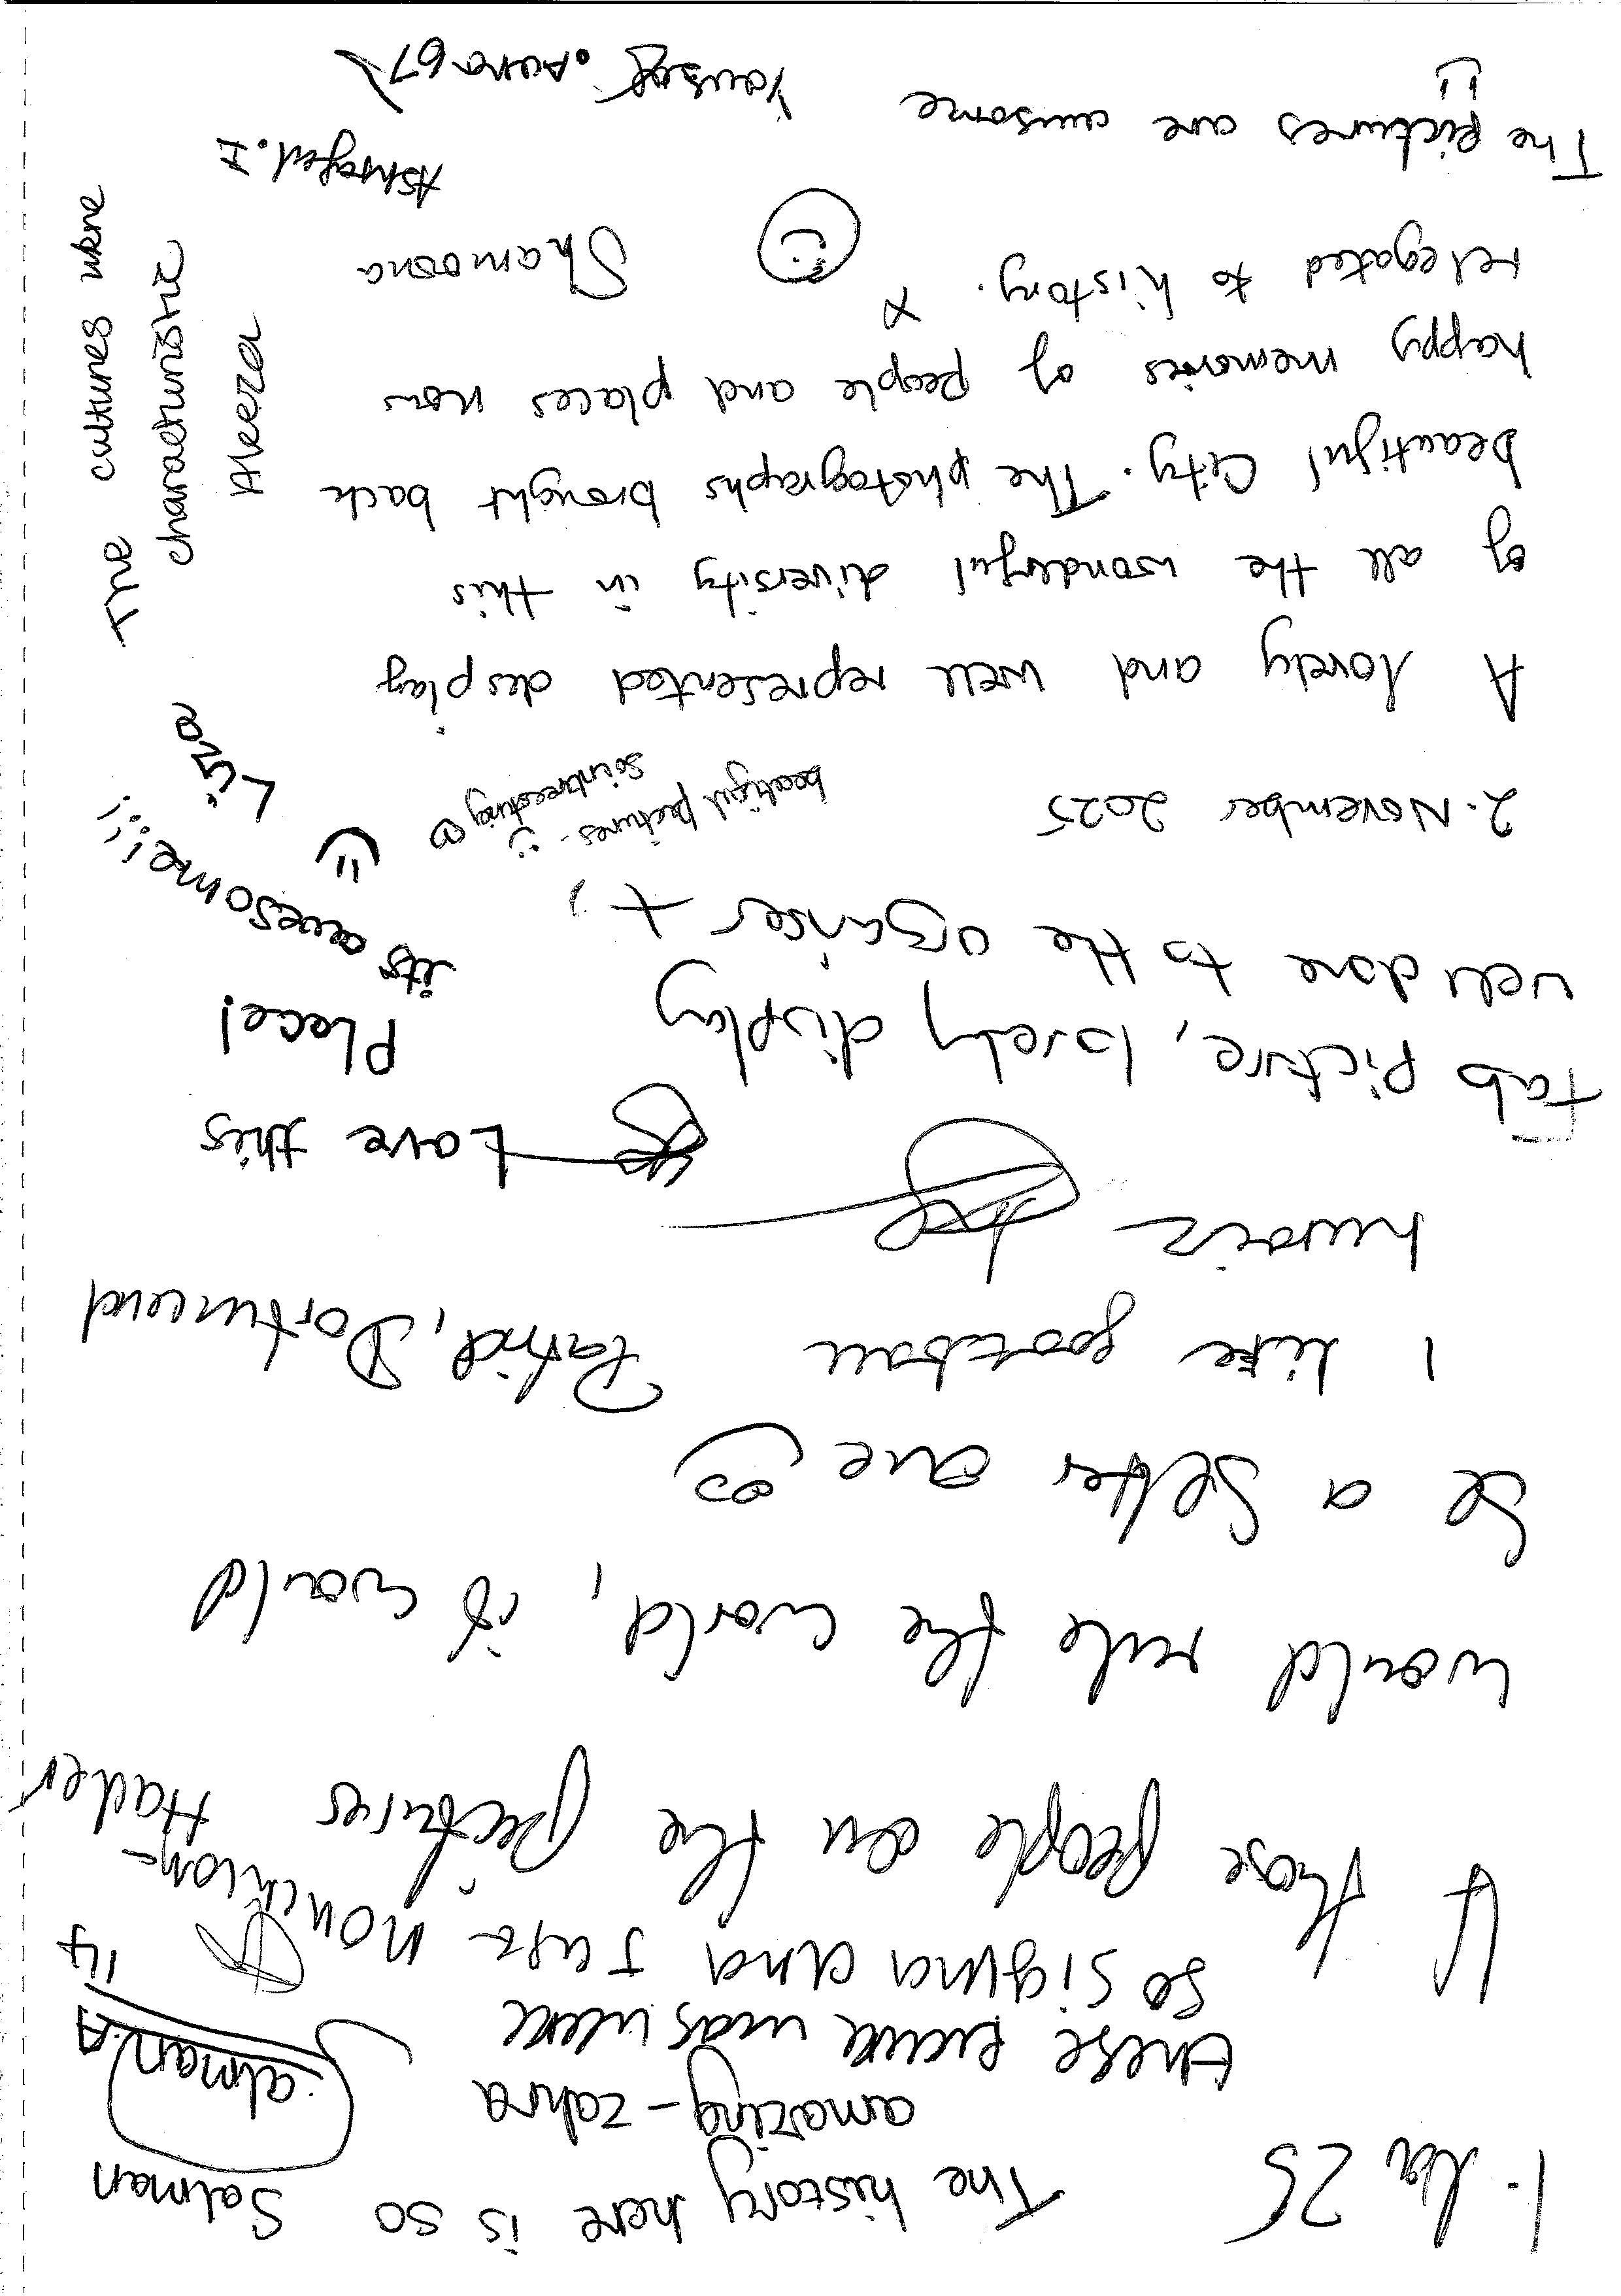 1. Nov 25
The history here is so
amazing - zahra
Salman
Salman.A
14
these picture was were
so sigma and just nonchilon-
Hader
If those people on the pictures
would rule the world, it would
be a better one
Patrick, Dortmund
I like football
huraiz
Love this
Place!
Fab picture, lovely display
well done to the organiser x
its awesome!!!
Liza
2. November 2025
beatiful pictures -
so intreesting
A lovely and well represented desplay
of all the wonderful diversity in this
beautiful City. The photographs brought back
happy memories of people and places now
relegated to history. x
Shamosna
The pictures are awsome
Yousef. Aura 67
Ashrafed. I
The cultures wkne
characturistic
Aleeza